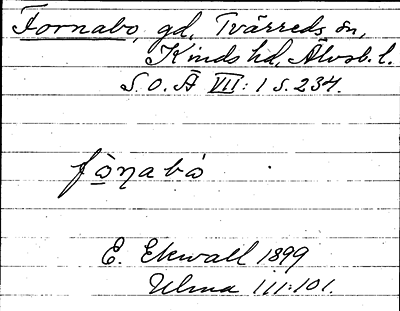 Fornabo, gd, Tvärreds sn,
Kinds hd, Älvsb. l.
S. O. Ä VII: 1 s. 234.
E. Ekwall 1899
Ulma 111:101.